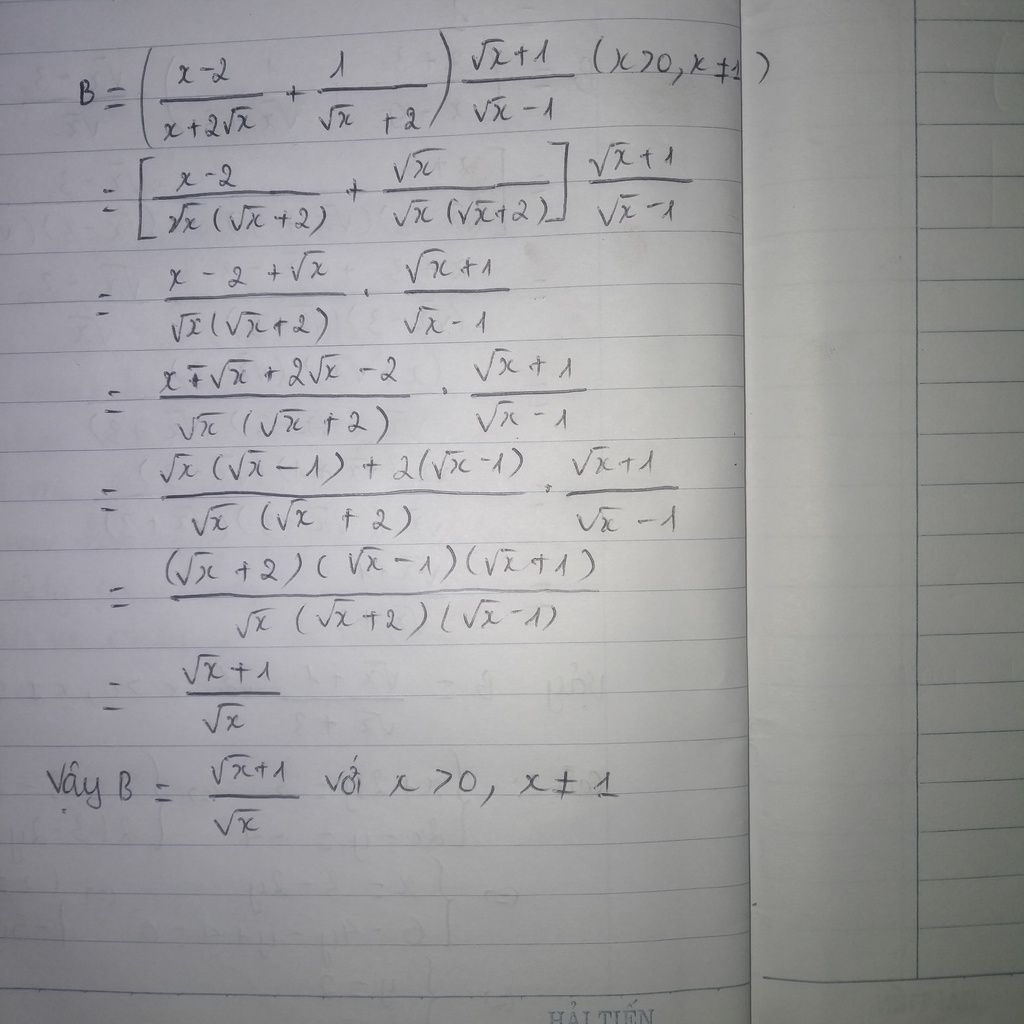 B = ( (x-2)/(x+2√x) + 1/(√x +2) ) (√x+1)/(√x-1) (x>0, x≠1)
= [ (x-2)/(√x(√x+2)) + √x/(√x(√x+2)) ] (√x+1)/(√x-1)
= (x-2+√x)/(√x(√x+2)) . (√x+1)/(√x-1)
= (x-√x+2√x-2)/(√x(√x+2)) . (√x+1)/(√x-1)
= (√x(√x-1)+2(√x-1))/(√x(√x+2)) . (√x+1)/(√x-1)
= ((√x+2)(√x-1)(√x+1))/(√x(√x+2)(√x-1))
= (√x+1)/√x
Vậy B = (√x+1)/√x với x>0, x≠1
HẢI TIẾN